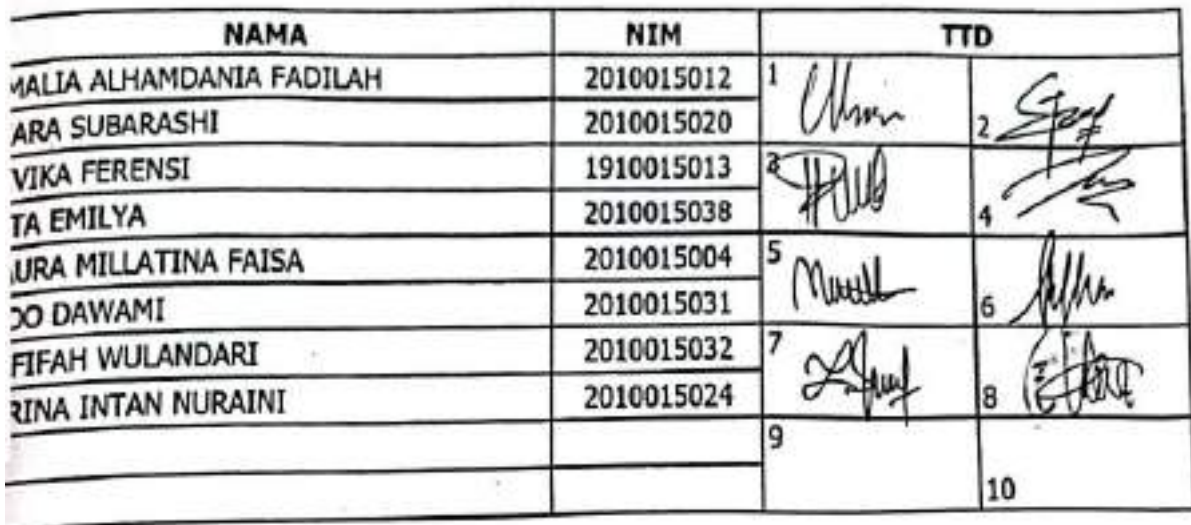 NAMA NIM TTD
MALIA ALHAMDANIA FADILAH 2010015012 1
ARA SUBARASHI 2010015020 2
VIKA FERENSI 1910015013 3
TA EMILYA 2010015038 4
URA MILLATINA FAISA 2010015004 5
DO DAWAMI 2010015031 6
FIFAH WULANDARI 2010015032 7
RINA INTAN NURAINI 2010015024 8
9
10